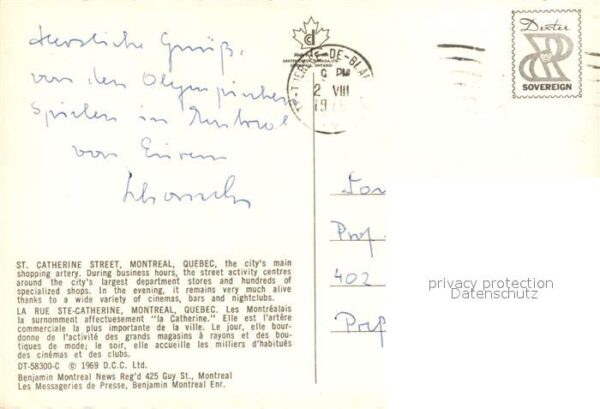 Herzliche Grüße
von den Olympischen
Spielen in Montreal
von Eurem
Dexter
SOVEREIGN
9 PM
2 VIII
19
Prof
402
privacy protection
Datenschutz
ST. CATHERINE STREET, MONTREAL, QUEBEC, the city's main
shopping artery. During business hours, the street activity centres
around the city's largest department stores and hundreds of
specialized shops. In the evening, it remains very much alive
thanks to a wide variety of cinemas, bars and nightclubs.
LA RUE STE-CATHERINE, MONTREAL, QUEBEC. Les Montréalais
la surnomment affectuesement "la Catherine." Elle est l'artère
commerciale la plus importante de la ville. Le jour, elle bour-
donne de l'activité des grands magasins à rayons et des bou-
tiques de mode; le soir, elle accueille les milliers d'habitués
des cinémas et des clubs.
DT-58300-C © 1969 D.C.C. Ltd.
Benjamin Montreal News Reg'd 425 Guy St., Montreal
Les Messageries de Presse, Benjamin Montreal Enr.